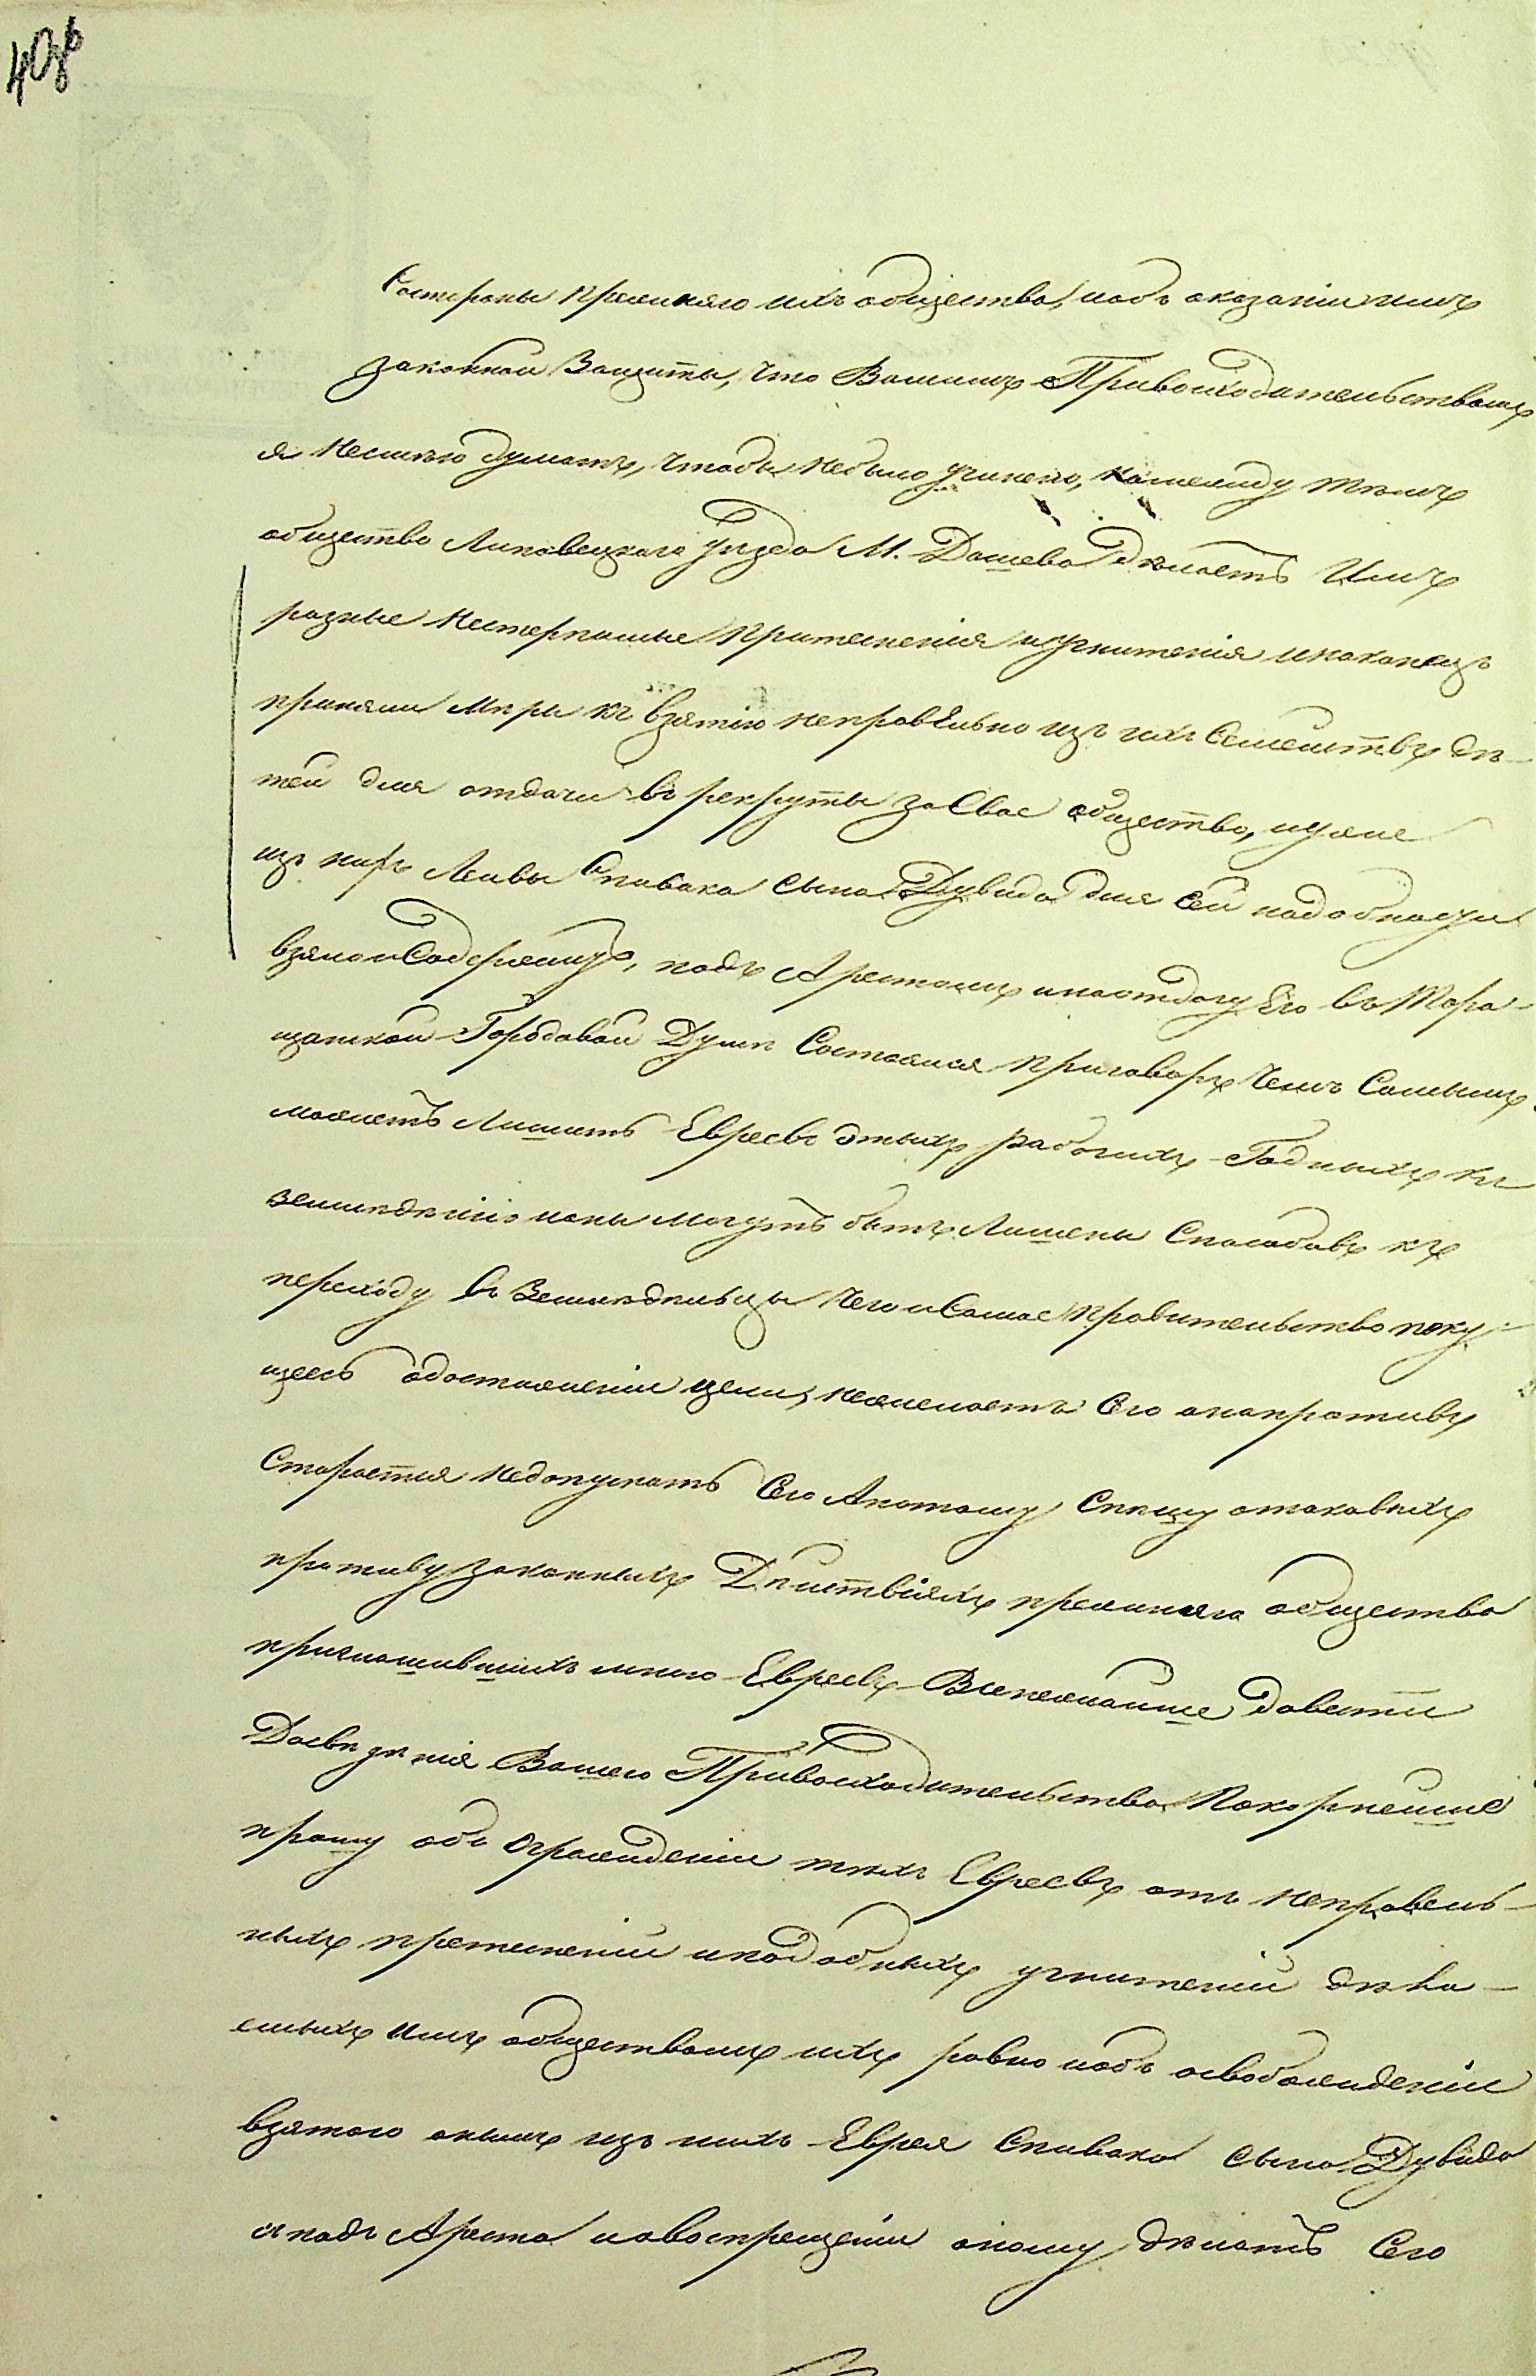 40об
Состороны прежняго ихъ общества, иобъ оказаніи имъ
законной Защиты, что Вашимъ Привосходительствомъ
я несмею думать, чтобы небыло учинено, Камежду темъ
общество Липовецкого уѣзда М. Дашева дѣлаетъ Имъ
разные нестерпимые притесненія иугнитенія инаконецъ
приняли мѣры къ взятію неправильно изъ ихъ Семействъ дѣ-
тей для отдачи въ рекруты заСвое общество, иуже
изъ нихъ Лейвы Спивака сына Дувида для сей надобности
взяло иСодержитъ, подъ Арестомъ инаотдачу Его въ Тара-
щанской Городовой Думѣ Состоялся приговоръ Чемъ Самымъ
можетъ Лишить Евреевъ этихъ рабочихъ Годныхъ къ
земледѣлію иони могутъ быть Лишены Способовъ къ
переходу въ Земледѣльцы Чего иСамое правительство пеку-
щеесь одостиженіи цели, нежелаетъ Сего анапротивъ
Старается недопускать Сего Апотому Спешу отаковыхъ
противузаконныхъ Дѣйствіяхъ прежняго общества
пригласившихъ мною Евреевъ Всенежнайше довести
Досвѣдѣнія Вашего Привосходительства Покорнейше
прошу объ огражденіи тѣхъ Евреевъ отъ неправель-
ныхъ претиненій иподобныхъ угнитеній дѣла-
емыхъ имъ обществомъ ихъ равно иобъ освобожденіи
взятого онымъ изъ нихъ Еврея Спивака сына Дувида
изподъ Ареста иовоспрещеніи оному дѣлать Сего